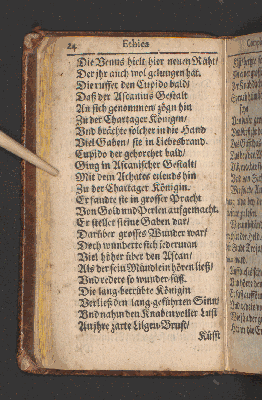 24
Ethica
Die Venus hielt hier neuen Raht/
Der jhr auch wol gelungen hat.
Die ruffet den Cupido bald/
Daß der Ascanius Gestalt
An sich genommen/ zög hin
Zu der Charthager Königin/
Und brächte solcher in die Hand
Viel Gaben/ sie in Liebesbrand.
Cupido der gehorchet bald/
Ging in Ascanischer Gestalt/
Mit dem Achates eilends hin
Zu der Charthager Königin.
Er fandte sie in grosser Pracht
Von Gold und Perlen auffgemacht.
Er stellet seine Gaben dar/
Darüber grosses Wunder war/
Doch wunderte sich jederman
Viel höher über den Ascan/
Als der sein Mündlein hören ließ/
Und redete so wunder-süß.
Die lang-betrübte Königin
Verließ den lang-geführten Sinn/
Und nahm den Knaben voller Lust
An jhre zarte Liljen-Brust/
Küsst